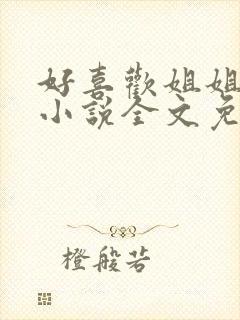 好喜歡姐姐
小説全文免
橙般若